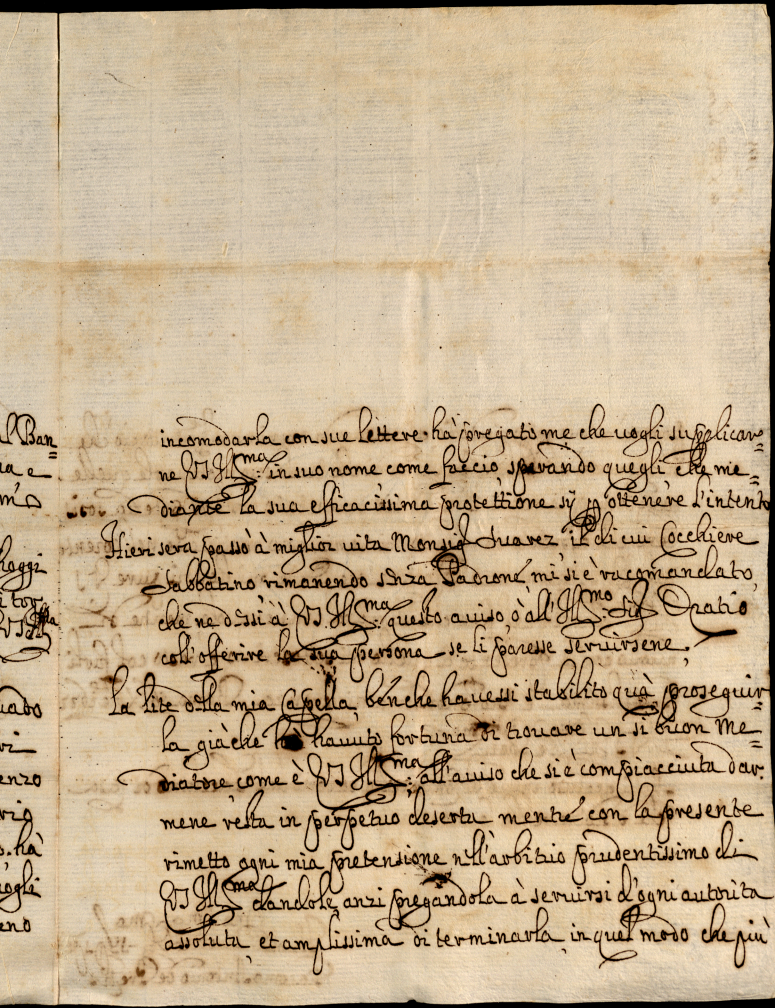 al Ban=
ua e
haggi
enzo
hà
eno
incomodarla con sue lettere hà pregato me che uogli supplicar=
ne VS Ill:ma in suo nome come faccio sperando quegli che me=
diante la sua efficacissima protettione sij p ottenere l'intento
Hieri sera passò à miglior uita Monsig Suarez il di cui Cocchiere
Sabbatino rimanendo senza Padrone mi si è racomandato,
che ne dessi à VS Ill:ma questo auiso, ò all'Ill:mo Sig Oratio
coll'offerire la sua persona se li paresse seruirsene.
La lite della mia Capella benche hauessi stabilito quà proseguir=
la già che hò hauuto fortuna di trouare un si buon Me=
diatore come è VS Ill:ma; all'auiso che si è compiacciuta dar=
mene resta in perpetuo deserta mentre con la presente
rimetto ogni mia pretensione nell'arbitrio prudentissimo di
VS Ill:ma dandole, anzi pregandola à seruirsi d'ogni autorità
assoluta et amplissima di terminarla in quel modo che più